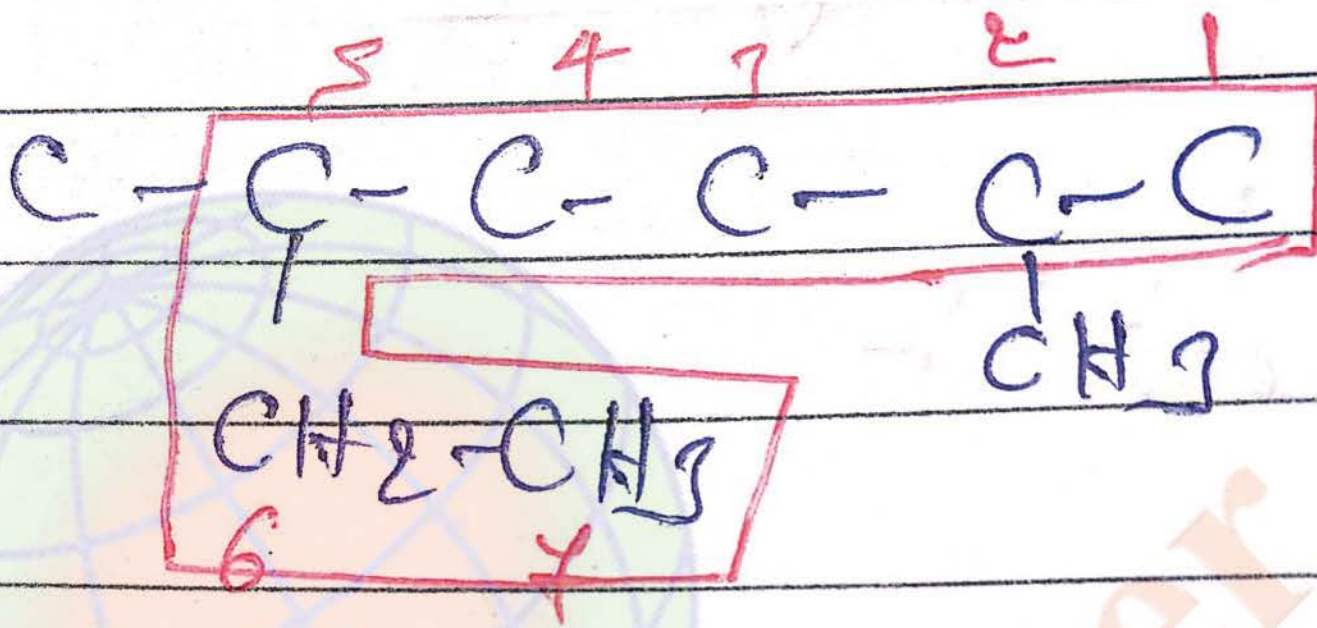 5 4 3 2 1
C - C - C - C - C - C
CH3
CH2-CH3
6 7